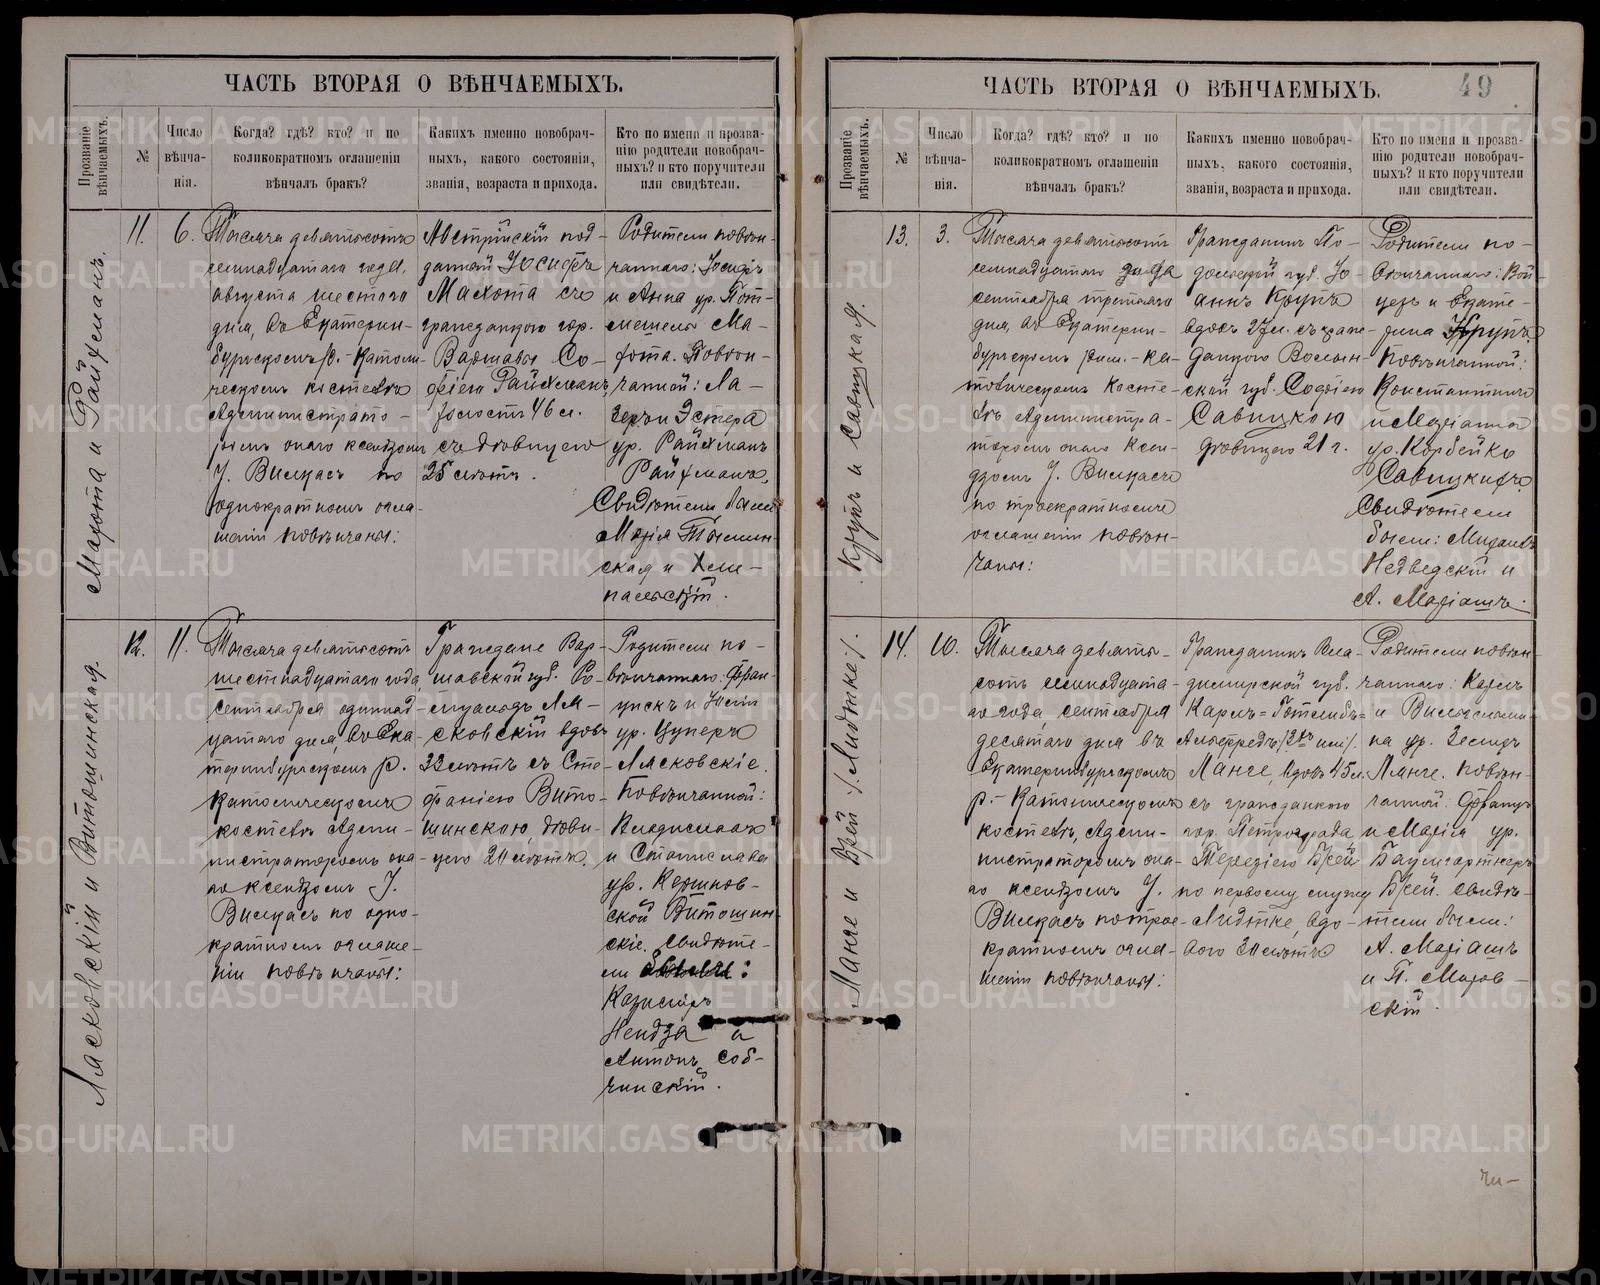 ЧАСТЬ ВТОРАЯ О ВѢНЧАЕМЫХЪ.
Прозваніе вѣнчаемыхъ.
№
Число
вѣнча-
нія.
Когда? гдѣ? кто? и по
коликократномъ оглашеніи
вѣнчалъ бракъ?
Какихъ именно новобрач-
ныхъ, какого состоянія,
званія, возраста и прихода.
Кто по имени и прозва-
нію родители новобрач-
ныхъ? и кто поручители
или свидѣтели.
Махота и Райхманъ.
11.
6.
Тысяча девятьсотъ
семнадцатаго года,
августа шестого
дня, въ Екатерин-
бургскомъ р.-католи-
ческомъ костелѣ
Администрато-
ромъ онаго ксендзомъ
І. Вилкасъ по
однократномъ огла-
шеніи повѣнчаны:
Австрійскій под-
данный Іосифъ
Махота съ
гражданкою гор.
Варшавы Со-
фіею Райхманъ,
холостъ 46 л.
съ дѣвицею
25 лѣтъ.
Родители повѣн-
чаннаго: Іосифъ
и Анна ур.
Ма-
хота. Повѣн-
чанной: Ла-
заръ и Эстера
ур. Райхманъ
Райхманъ.
Свидѣтели были
Марія
ская и Хме-
лальскій.
Лясковскій и Витошинская.
12.
11.
Тысяча девятьсотъ
шестнадцатаго года,
сентября одиннад-
цатаго дня, въ Ека-
теринбургскомъ р.
католическомъ
костелѣ Адми-
нистраторомъ она-
го ксендзомъ І.
Вилкасъ по одно-
кратномъ оглаше-
ніи повѣнчаны:
Граждане Вар-
шавской губ. Ро-
муальдъ Ля-
сковскій вдовъ
32 лѣтъ съ Сте-
фаніею Вито-
шинскою, дѣви-
цею 24 лѣтъ.
Родители по-
вѣнчаннаго: Фран-
цискъ и Юлія
ур. Цуперъ
Лясковскіе.
Повѣнчанной:
Владиславъ
и Станислава
ур. Кершнов-
ской Витошин-
скіе. Свидѣте-
ли были:
Казиміръ
Нендза и
Антонъ Соб-
чинскій.
ЧАСТЬ ВТОРАЯ О ВѢНЧАЕМЫХЪ.
49
Прозваніе вѣнчаемыхъ.
№
Число
вѣнча-
нія.
Когда? гдѣ? кто? и по
коликократномъ оглашеніи
вѣнчалъ бракъ?
Какихъ именно новобрач-
ныхъ, какого состоянія,
званія, возраста и прихода.
Кто по имени и прозва-
нію родители новобрач-
ныхъ? и кто поручители
или свидѣтели.
Крупъ и Савицкая.
13.
3.
Тысяча девятьсотъ
семнадцатаго года
сентября третьяго
дня, въ Екатерин-
бургскомъ рим.-ка-
толическомъ косте-
лѣ Администра-
торомъ онаго ксен-
дзомъ І. Вилкасъ
по троекратномъ
оглашеніи повѣн-
чаны:
Гражданинъ По-
дольской губ. Іо-
аннъ Крупъ
вдовъ 27 л. съ граж-
данкою Волын-
ской губ. Софіею
Савицкою
дѣвицею 21 г.
Родители по-
вѣнчаннаго: Вой-
цехъ и Екате-
рина Крупъ.
Повѣнчанной:
Константинъ
и Маріанна
ур. Корбейко
Савицкихъ.
Свидѣтели
были: Михаилъ
Недведскій и
А. Маріашъ.
Ланге и Брей /Лидтке/.
14.
10.
Тысяча девять-
сотъ семнадцата-
го года, сентября
десятаго дня въ
Екатеринбургскомъ
р.-Католическомъ
костелѣ, Адми-
нистраторомъ она-
го ксендзомъ І.
Вилкасъ по трое-
кратномъ огла-
шеніи повѣнчаны:
Гражданинъ Вла-
димирской губ.
Карлъ=Готлибъ=
Альфредъ
Ланге, вдовъ 45 л.
съ гражданкою
гор. Петрограда,
Терезіею Брей
по первому мужу
Лидтке, вдо-
вою 34 лѣтъ
Родители повѣн-
чаннаго: Карлъ
и Вильгельми-
на ур. Зелидъ
Ланге. Повѣн-
чанной: Францъ
и Марія ур.
Баумгартнеръ
Брей. Свидѣ-
тели были:
А. Маріашъ
и П. Маров-
скій.
METRIKI.GASO-URAL.RU